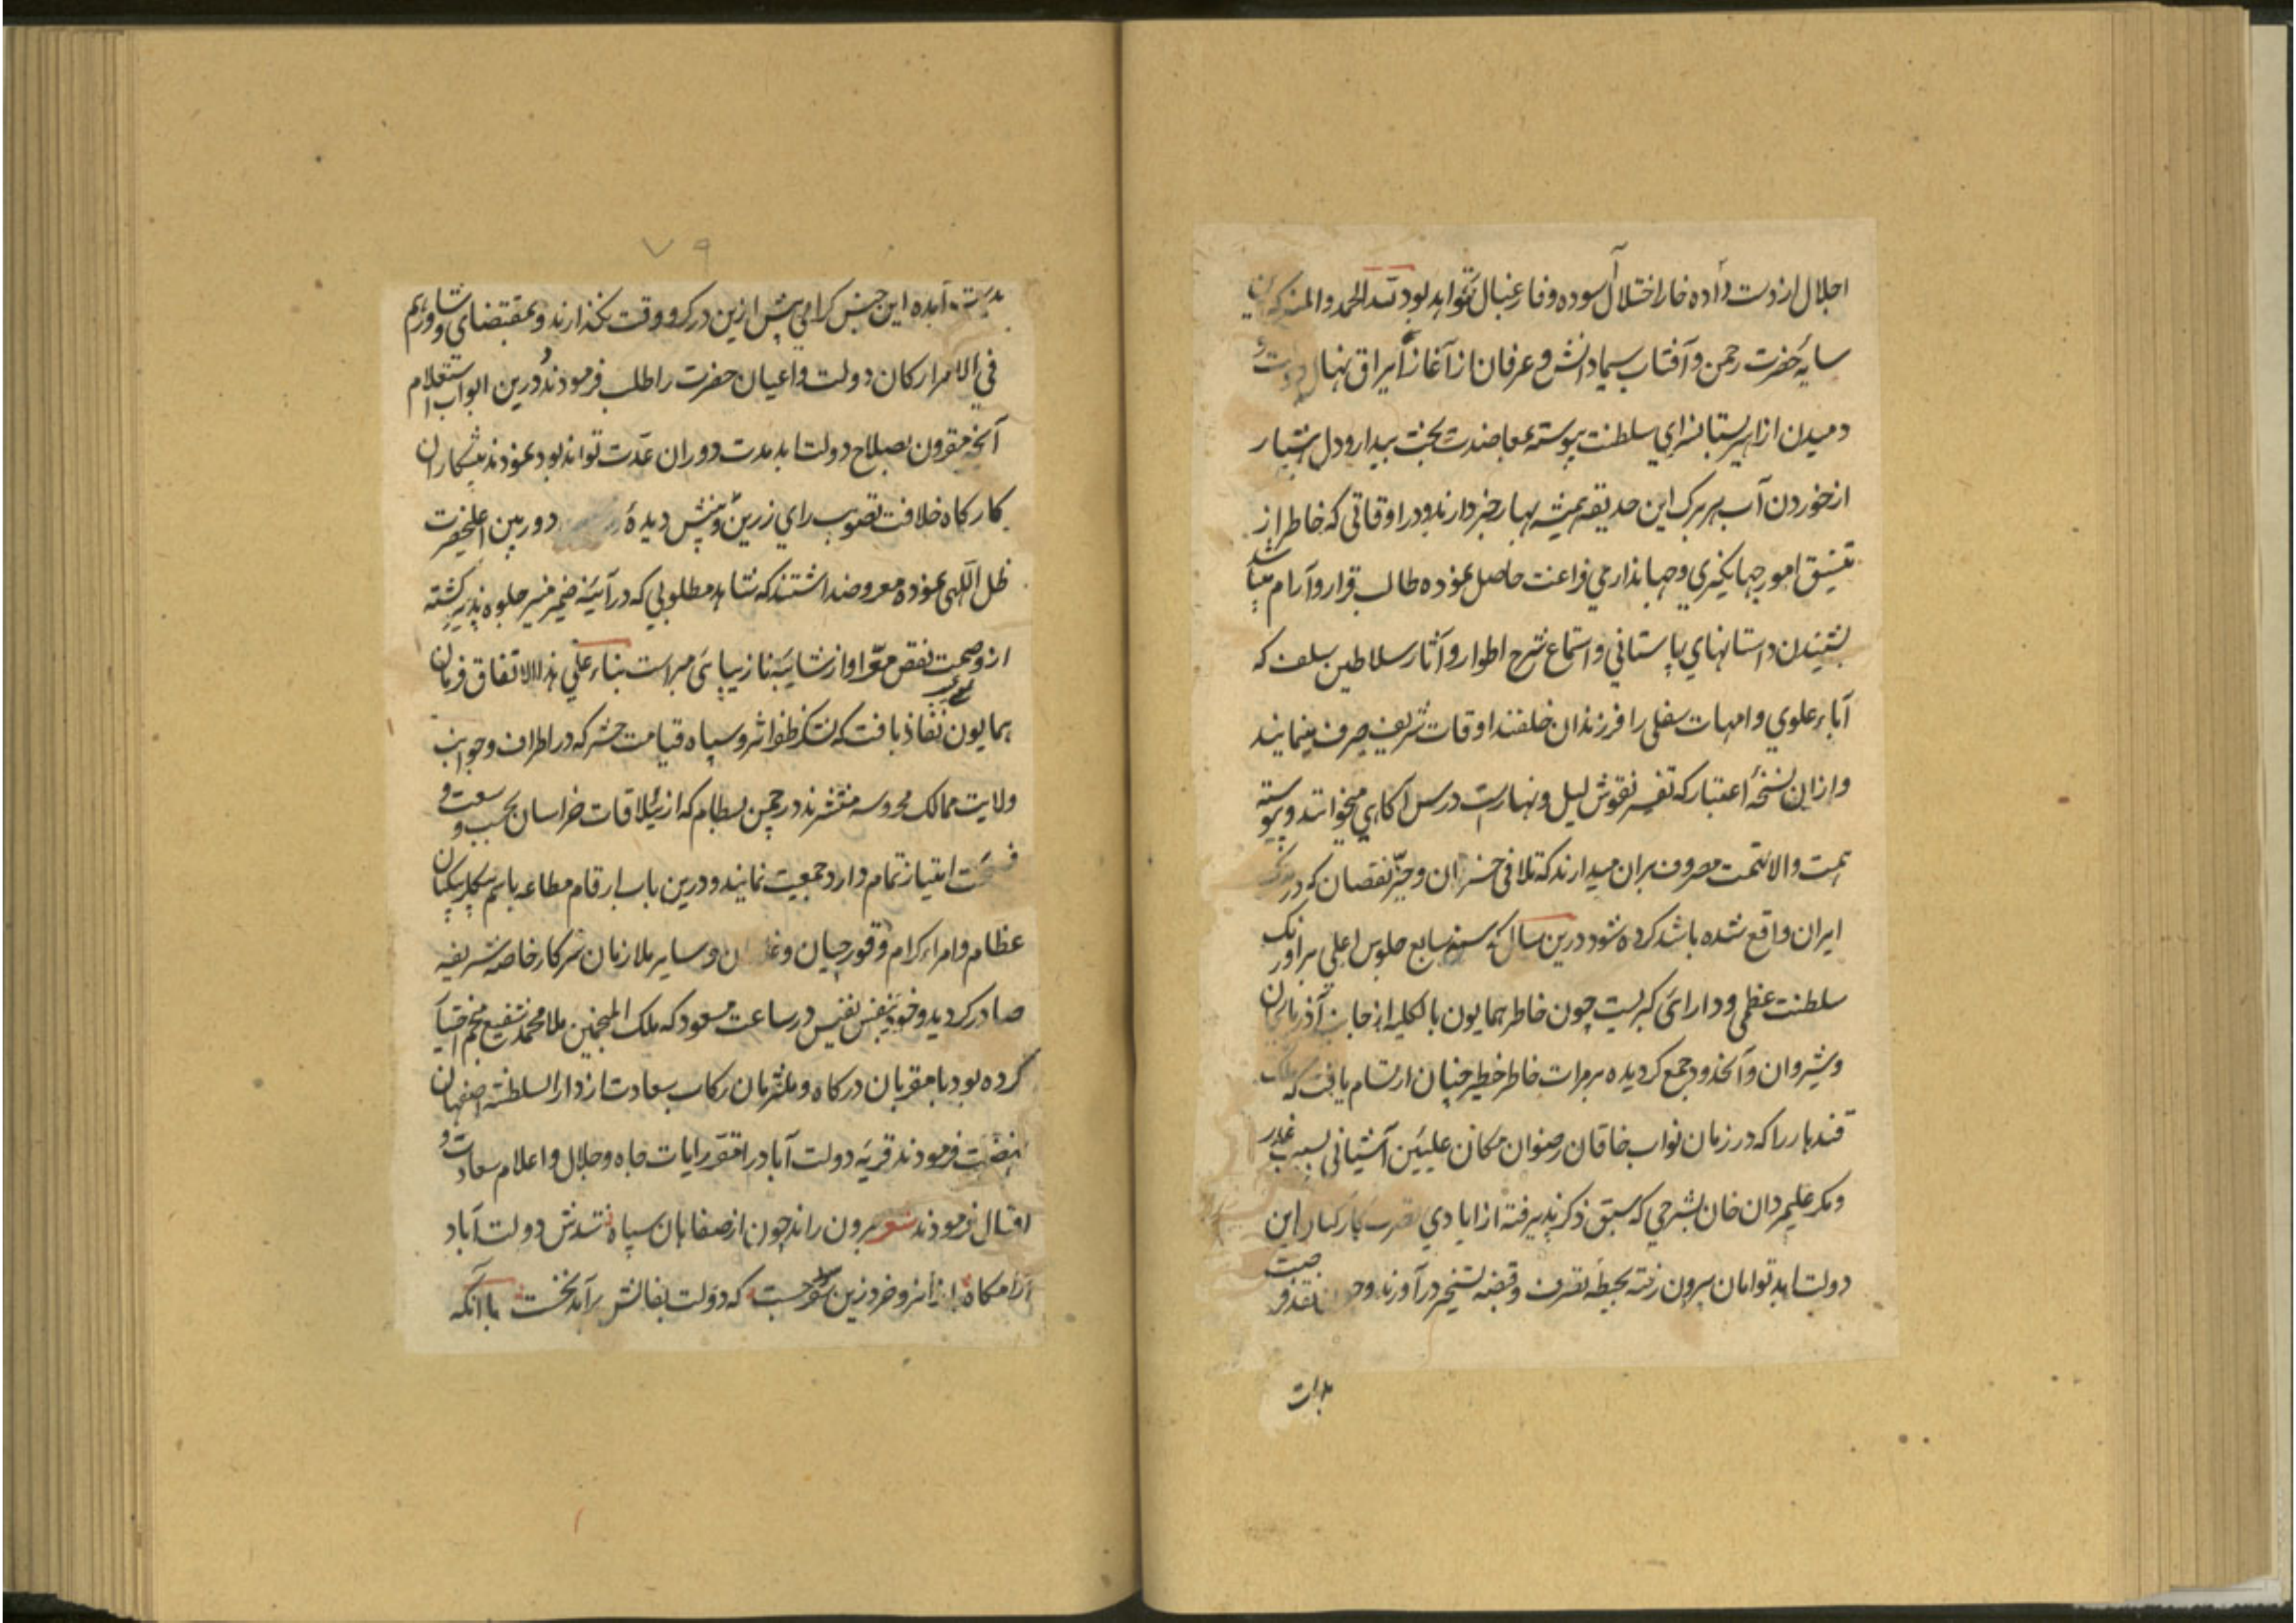 اجلال از دست داده خار اختلال آسوده و فارغبال تواند بود لله الحمد والمنه که این
سایه حضرت رحمن و آفتاب سیماء دانش و عرفان از آغاز ایراق نهال دولت و
دمیدن ازاهیر بستانسرای سلطنت پیوسته بمعاضدت بخت بیدار و دل هشیار
از خوردن آب هر برگ این حدیقه همیشه بهار خبر دارند و در اوقاتی که خاطر از
تنسیق امور جهانگیری و جهانداری فراغت حاصل نموده طالب قرار و آرام میباشد
بشنیدن داستانهای باستانی و استماع شرح اطوار و آثار سلاطین سلف که
آباء علوی و امهات سفلی را فرزندان خلفند اوقات شریف صرف مینمایند
و از ان نسخه اعتبار که تفسیر نقوش لیل و نهارست درس آگاهی میخوانند و پیوسته
همت والا نهمت مصروف بران میدارند که تلافی خسران و جبر نقصان که در ملک
ایران واقع شده باشد کرده شود درین سال که سنه سابع جلوس اعلی بر اورنگ
سلطنت عظمی و دارائی کبریست چون خاطر همایون بالکلیه از جانب آذربایجان
و شیروان و آنحدود جمع گردیده بر مرآت خاطر خطیر چنان ارتسام یافت که ملک
قندهار را که در زمان نواب خاقان رضوان مکان علیین آشیانی بسبب غدر
و مکر علیمردان خان بشرحی که سبق ذکر پذیرفته از ایادی تصرف کارکنان این
دولت ابد توامان بیرون رفته بحیطه تصرف و قبضه تسخیر درآورند و نقد و
بدات
۷۹
این جنس گرامی پیش ازین در گرو وقت نگذارند و بمقتضای و شاورهم
فی الامر ارکان دولت و اعیان حضرت را طلب فرمودند و درین ابواب استعلام
آنچه مقرون بصلاح دولت ابد مدت دوران عدت تواند بود نمودند پیشکاران
کارگاه خلافت تصویب رای زرین و پیش دیده دوربین اعلیحضرت
ظل اللهی نموده معروضداشتند که شاهد مطلوبی که در آئینه ضمیر منیر جلوه پذیر گشته
از وصمت نقص معرا و از شایبه نازیبایی مبراست بناء علی هذا الاتفاق فرمان
همایون نفاذ یافت که لشکر ظفر اثر و سپاه قیامت حشر که در اطراف و جوانب
ولایت ممالک محروسه منتشرند در چمن بسطام که از ییلاقات خراسان بحسب وسعت و
فسحت امتیاز تمام دارد جمعیت نمایند و درین باب ارقام مطاعه باسم بیگلربیگیان
عظام و امراء کرام و قورچیان و و سایر ملازمان سرکار خاصه شریفه
صادر گردید و خود بنفس نفیس در ساعت مسعود که ملک المنجمین ملا محمد شفیع منجم اختیار
کرده بود با مقربان درگاه و ملتزمان رکاب سعادت از دار السلطنه اصفهان
نهضت فرمودند قریه دولت آباد را مقر رایات جاه و جلال و اعلام سعادت و
اقبال فرمودند شعر برون راند چون از صفاهان سپاه شدش دولت آباد
آرامگاه خرد زین که دولت بفالش برآمد نخست با آنکه